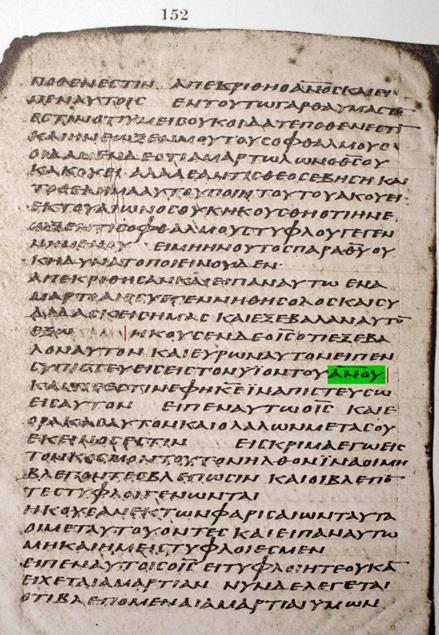 152
ΠΟΘΕΝΕϹΤΙΝ ΑΠΕΚΡΙΘΗΟΑΝ̅Ο̅Ϲ̅ΚΑΙΕΙ
ΠΕΝΑΥΤΟΙϹ ΕΝΤΟΥΤΩΓΑΡΘΑΥΜΑϹΤΟ̅
ΕϹΤΙΝΟΤΙΥΜΕΙϹΟΥΚΟΙΔΑΤΕΠΟΘΕΝΕϹΤΙ
ΚΑΙΗΝΕΩΞΕΝΜΟΥΤΟΥϹΟΦΘΑΛΜΟΥϹ
ΟΙΔΑΜΕΝΔΕΟΤΙΑΜΑΡΤΩΛΩΝΟΘ̅Ϲ̅ΟΥ
ΚΑΚΟΥΕΙ ΑΛΛΑΕΑΝΤΙϹΘΕΟϹΕΒΗϹΗ ΚΑΙ
ΤΟΘΕΛΗΜΑΑΥΤΟΥΠΟΙΗΤΟΥΤΟΥΑΚΟΥΕΙ
ΕΚΤΟΥΑΙΩΝΟϹΟΥΚΗΚΟΥϹΘΗΟΤΙΗΝΕ
ΩΞΕΝΤΙϹΟΦΘΑΛΜΟΥϹΤΥΦΛΟΥΓΕΓΕΝ
ΝΗΜΕΝΟΥ ΕΙΜΗΗΝΟΥΤΟϹΠΑΡΑΘ̅Υ̅ΟΥ
ΚΗΔΥΝΑΤΟΠΟΙΕΙΝΟΥΔΕΝ
ΑΠΕΚΡΙΘΗϹΑΝΚΑΙΕΙΠΑΝΑΥΤΩ ΕΝΑ
ΜΑΡΤΙΑΙϹϹΥΕΓΕΝΝΗΘΗϹΟΛΟϹΚΑΙϹΥ
ΔΙΔΑϹΚΕΙϹΗΜΑϹ ΚΑΙΕΞΕΒΑΛΑΝΑΥΤΟ̅
ΕΞΩ ΗΚΟΥϹΕΝΔΕΟΙ̅Ϲ̅ΟΤΙΕΞΕΒΑ
ΛΟΝΑΥΤΟΝ ΚΑΙΕΥΡΩΝΑΥΤΟΝΕΙΠΕΝ
ϹΥΠΙϹΤΕΥΕΙϹΕΙϹΤΟΝΥΙΟΝΤΟΥΑΝ̅Ο̅Υ̅
ΚΑΙΤΙϹΕϹΤΙΝΕΦΗΚ̅Ε̅ΪΝΑΠΙϹΤΕΥϹΩ
ΕΙϹΑΥΤΟΝ ΕΙΠΕΝΑΥΤΩΟΙ̅Ϲ̅ ΚΑΙΕ
ΟΡΑΚΑϹΑΥΤΟΝΚΑΙΟΛΑΛΩΝΜΕΤΑϹΟΥ
ΕΚΕΙΝΟϹΕϹΤΙΝ ΕΙϹΚΡΙΜΑΕΓΩΕΙϹ
ΤΟΝΚΟϹΜΟΝΤΟΥΤΟΝΗΛΘΟΝΪΝΑΟΙΜΗ
ΒΛΕΠΟΝΤΕϹΒΛΕΠΩϹΙΝ ΚΑΙΟΙΒΛΕΠΟ̅
ΤΕϹΤΥΦΛΟΙΓΕΝΩΝΤΑΙ
ΗΚΟΥϹΑΝΕΚΤΩΝΦΑΡΙϹΑΙΩΝΤΑΥΤΑ
ΟΙΜΕΤΑΥΤΟΥΟΝΤΕϹ ΚΑΙΕΙΠΑΝΑΥΤΩ
ΜΗΚΑΙΗΜΕΙϹΤΥΦΛΟΙΕϹΜΕΝ
ΕΙΠΕΝΑΥΤΟΙϹΟΙ̅Ϲ̅ ΕΙΤΥΦΛΟΙΗΤΕΟΥΚΑ̅
ΕΙΧΕΤΑΙΑΜΑΡΤΙΑΝ ΝΥΝΔΕΛΕΓΕΤΑΙ
ΟΤΙΒΛΕΠΟΜΕΝΑΙΑΜΑΡΤΙΑΙΥΜΩΝ